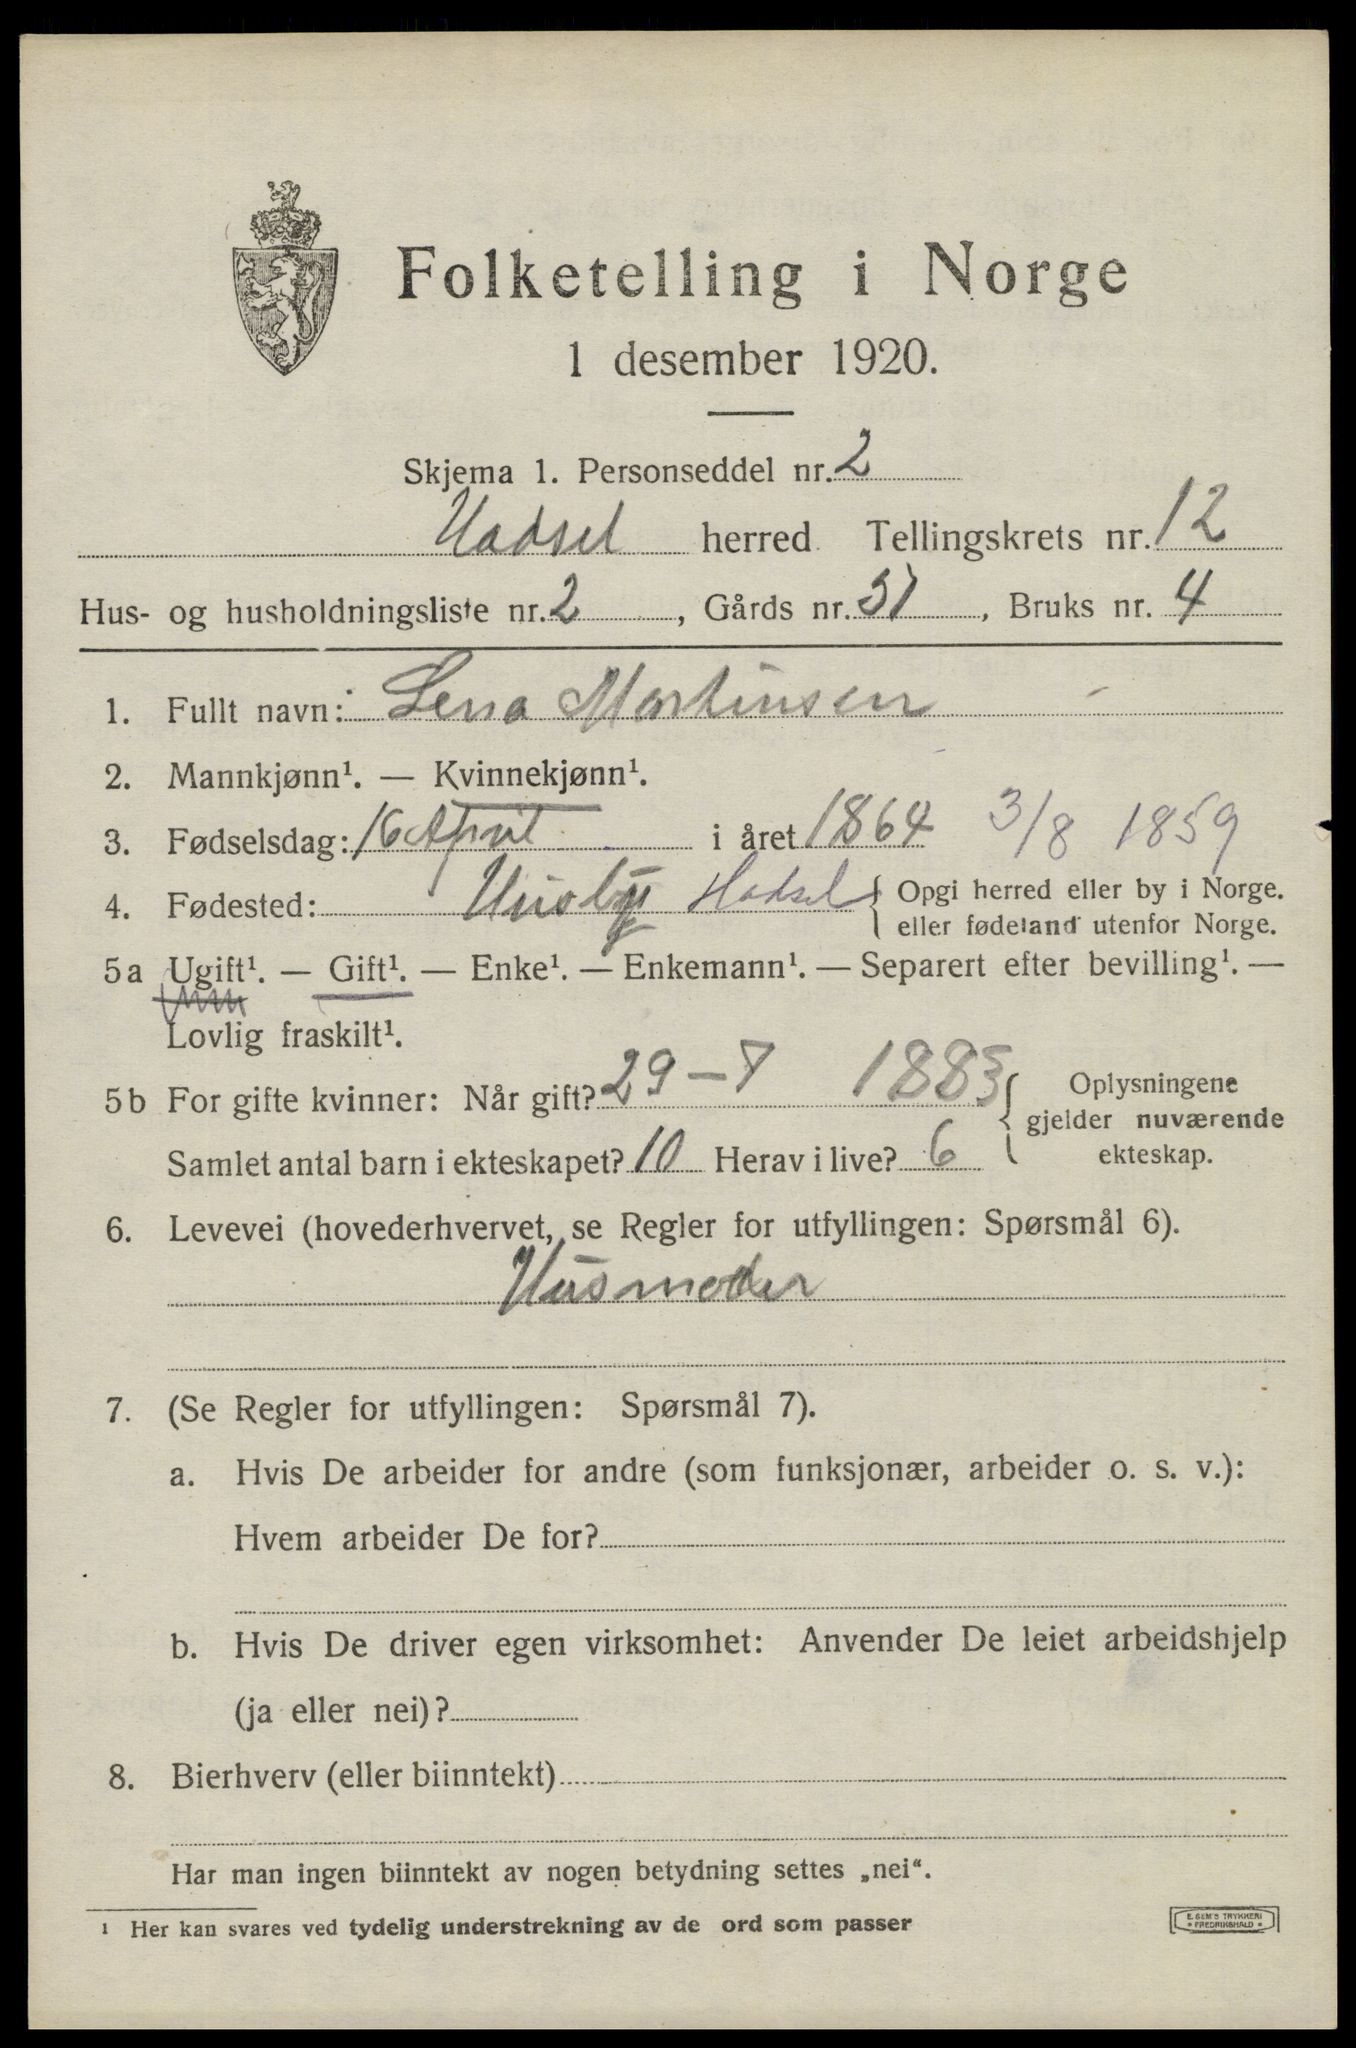 Folketelling i Norge
1 desember 1920.
Skjema 1. Personseddel nr. 2
Hadsel herred Tellingskrets nr. 12
Hus- og husholdningsliste nr. 2, Gårds nr. 51, Bruks nr. 4
1. Fullt navn: Lena Martinsen
2. Mannkjønn¹. — Kvinnekjønn¹.
3. Fødselsdag: 16 April i året 1864 3/8 1859
4. Fødested: Husby Hadsel { Opgi herred eller by i Norge.
eller fødeland utenfor Norge.
5a Ugift¹. — Gift¹. — Enke¹. — Enkemann¹. — Separert efter bevilling¹. —
Lovlig fraskilt¹.
5b For gifte kvinner: Når gift? 29 – 7 1883 { Oplysningene
gjelder nuværende
Samlet antal barn i ekteskapet? 10 Herav i live? 6 ekteskap.
6. Levevei (hovederhvervet, se Regler for utfyllingen: Spørsmål 6).
Husmoder
7. (Se Regler for utfyllingen: Spørsmål 7).
a. Hvis De arbeider for andre (som funksjonær, arbeider o. s. v.):
Hvem arbeider De for?
b. Hvis De driver egen virksomhet: Anvender De leiet arbeidshjelp
(ja eller nei)?
8. Bierhverv (eller biinntekt)
Har man ingen biinntekt av nogen betydning settes „nei“.
¹ Her kan svares ved tydelig understrekning av de ord som passer
E. SEM'S TRYKKERI
* FREDRIKSHALD *